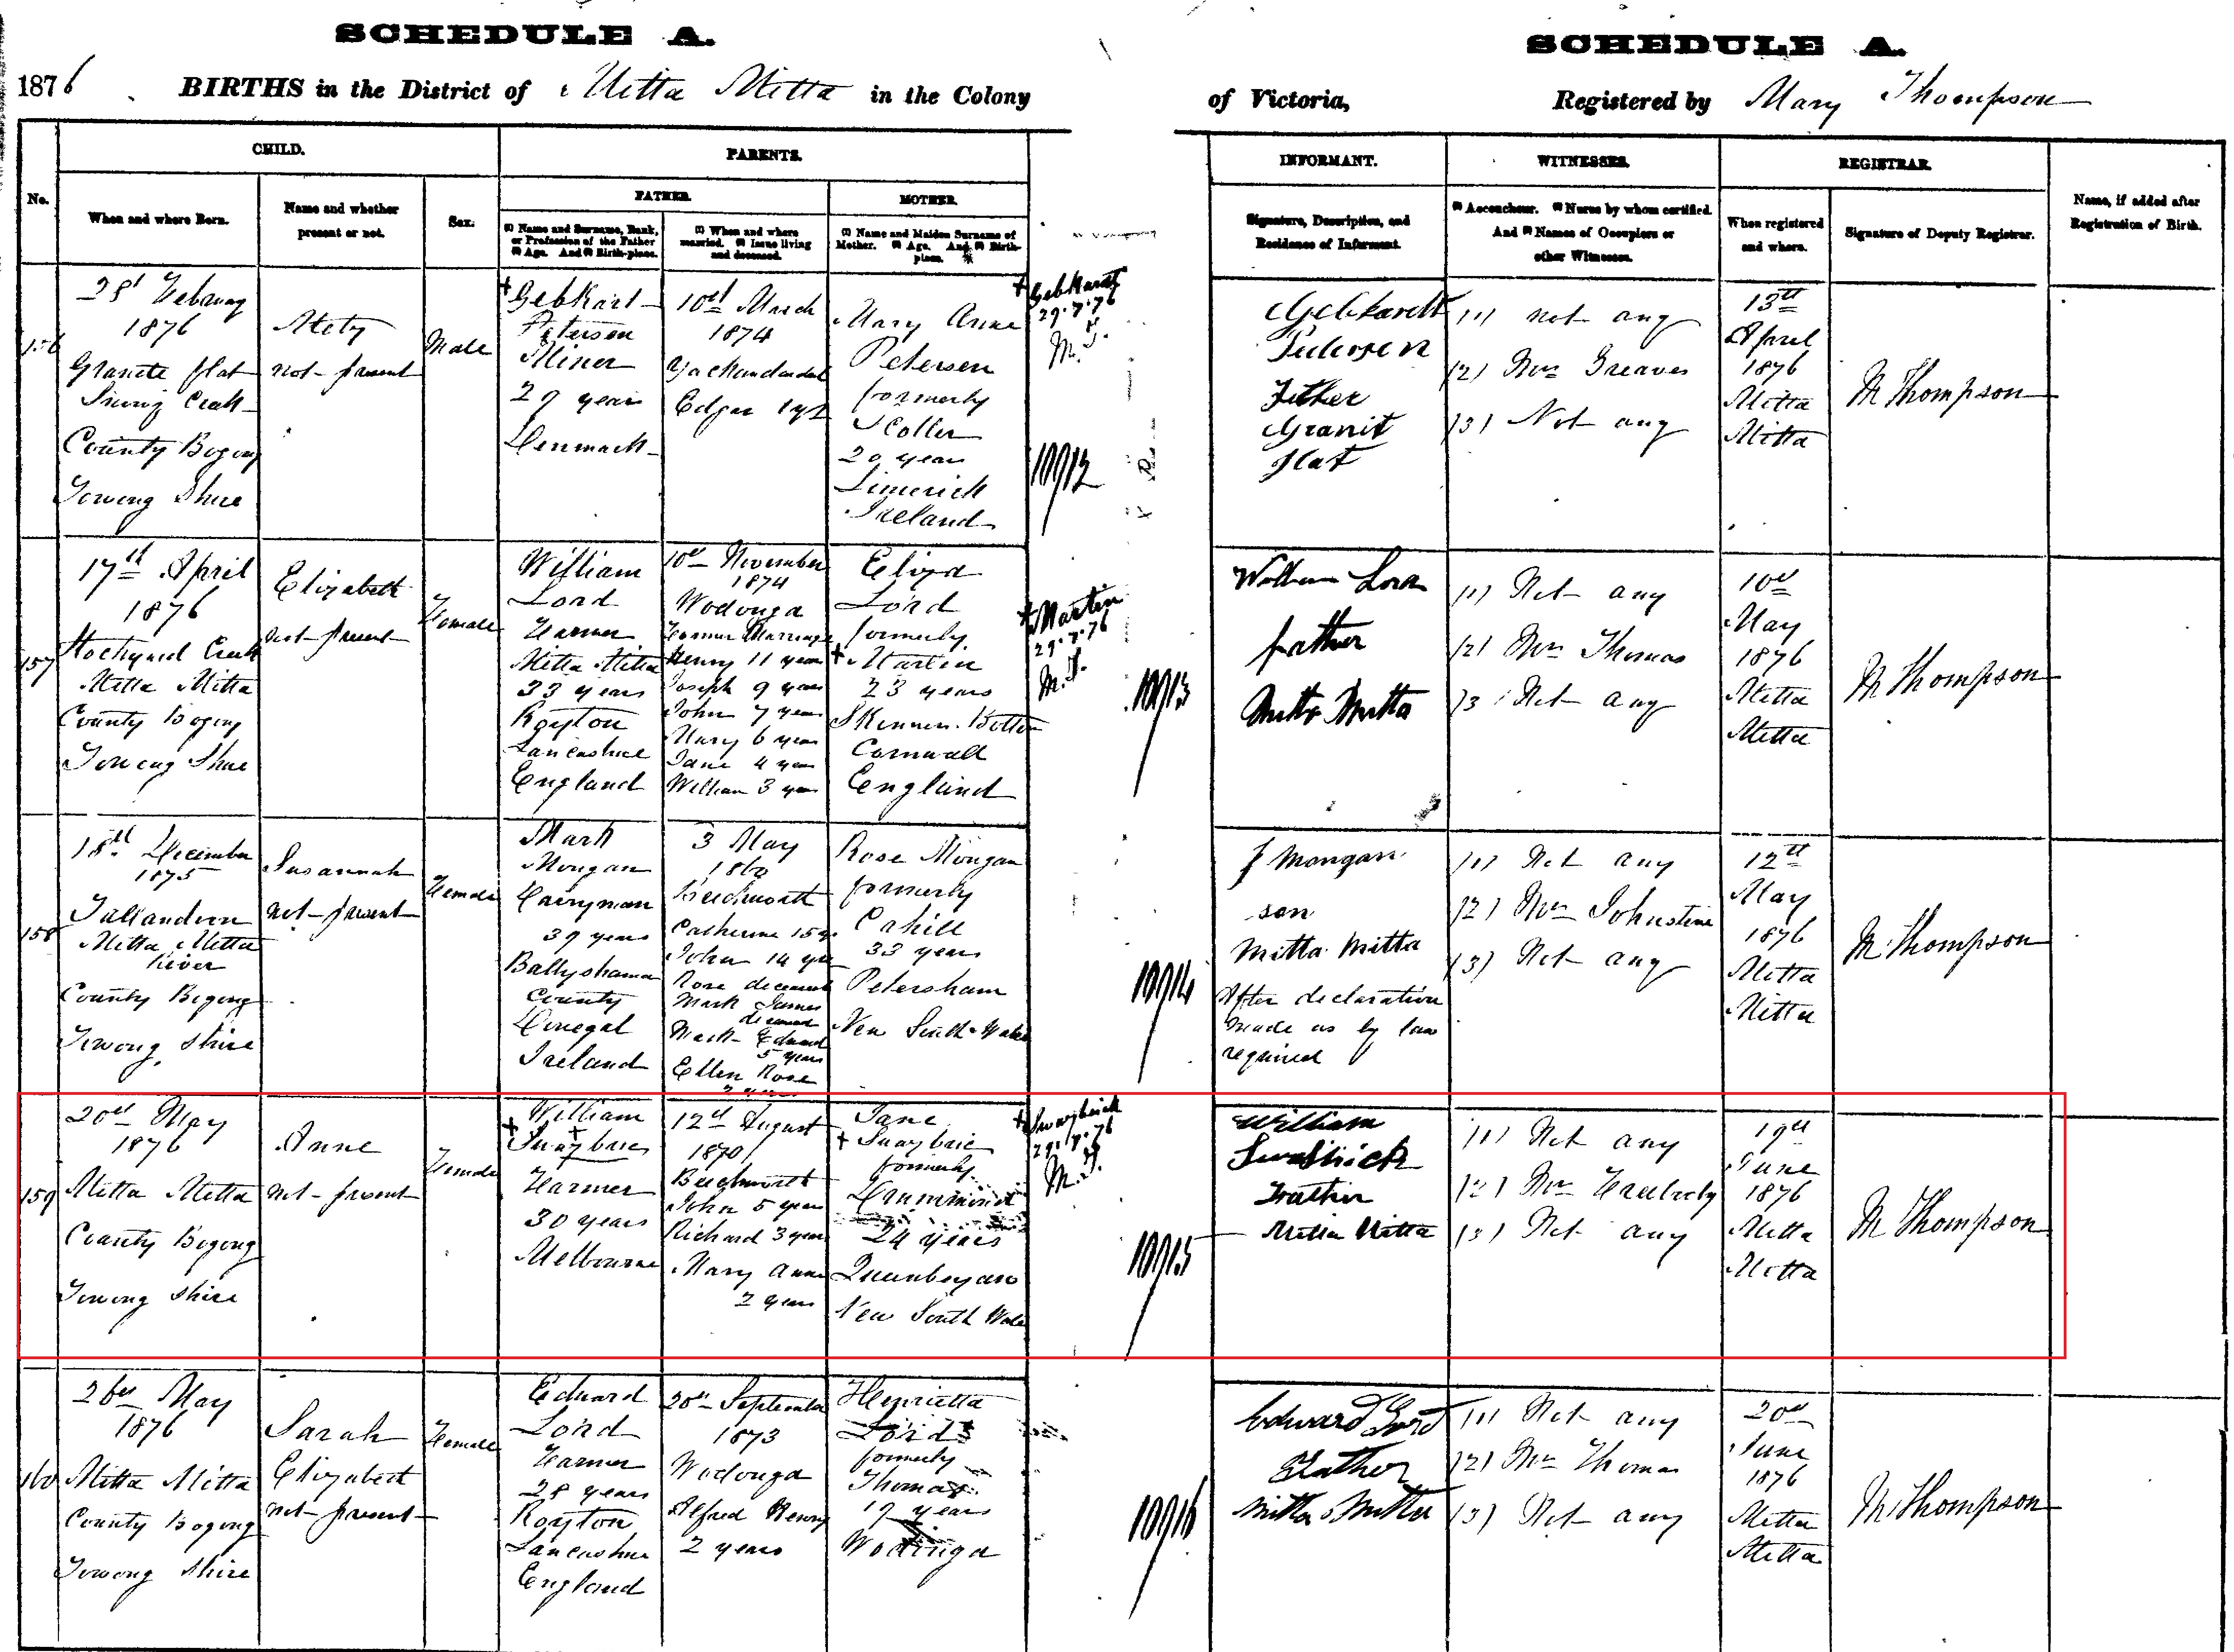 SCHEDULE A.
1876 BIRTHS in the District of Mitta Mitta in the Colony
No.
CHILD.
When and where Born.
Name and whether
present or not.
Sex.
PARENTS.
FATHER.
(1) Name and Surname, Rank,
or Profession of the Father
(2) Age. And (3) Birth-place.
(1) When and where
married. (2) Issue living
and deceased.
MOTHER.
(1) Name and Maiden Surname of
Mother. (2) Age. And (3) Birth-
place.
SCHEDULE A.
of Victoria, Registered by Mary Thompson
INFORMANT.
Signature, Description, and
Residence of Informant.
WITNESSES.
(1) Accoucheur. (2) Nurse by whom certified.
And (3) Names of Occupiers or
other Witnesses.
REGISTRAR.
When registered
and where.
Signature of Deputy Registrar.
Name, if added after
Registration of Birth.
156
February
1876
Granite flat
County Bogong
Towong Shire
not present
Male
Petersen
Miner
29 years
Denmark
10th March
1874
Yackandandah
Edgar 1 yr
Mary Anne
Petersen
formerly
20 years
Limerick
Ireland
Gebhardt
29.7.76
M.T.
10912
Gebhardt
Petersen
Father
Granit
flat
(1) not any
(2) Mrs Greaves
(3) Not any
13th
April
1876
Mitta
Mitta
M Thompson
157
17th April
1876
Mitta Mitta
County Bogong
Towong Shire
Elizabeth
not present
Female
William
Lord
Farmer
Mitta Mitta
33 years
Royton
Lancashire
England
10th November
1874
Wodonga
Former Marriage
Henry 11 years
Joseph 9 years
John 7 years
Mary 6 years
Jane 4 years
William 3 years
Eliza
Lord
formerly
+ Martin
23 years
Skinners Bottom
Cornwall
England
+ Martin
29.7.76
M.T.
10913
William Lord
father
Mitta Mitta
(1) Not any
(2) Mrs Thomas
(3) Not any
10th
May
1876
Mitta
Mitta
M Thompson
158
18th December
1875
Tallandoon
Mitta Mitta
River
County Bogong
Towong Shire
Susannah
not present
Female
Mark
Mongan
Dairyman
39 years
Ballyshannon
County
Donegal
Ireland
3 May
1860
Beechworth
Catherine 15 y.
John 14 yrs
Rose deceased
Mark James
deceased
Mark Edward
5 years
Ellen Rose
Rose Mongan
formerly
Cahill
33 years
Petersham
New South Wales
10914
J Mongan
son
Mitta Mitta
After declaration
made as by law
required
(1) Not any
(2) Mrs Johnstone
(3) Not any
12th
May
1876
Mitta
Mitta
M Thompson
159
20th May
1876
Mitta Mitta
County Bogong
Towong Shire
Anne
not present
Female
William
Farmer
30 years
Melbourne
12th August
1870
Beechworth
John 5 years
Richard 3 years
Mary Anne
2 years
Jane
formerly
Drummond
24 years
Queanbeyan
New South Wales
29.7.76
M.T.
10915
William
Father
Mitta Mitta
(1) Not any
(2) Mrs
(3) Not any
19th
June
1876
Mitta
Mitta
M Thompson
160
26th May
1876
Mitta Mitta
County Bogong
Towong Shire
Sarah
Elizabeth
not present
Female
Edward
Lord
Farmer
28 years
Royton
Lancashire
England
20th September
1873
Wodonga
Alfred Henry
2 years
Henrietta
Lord
formerly
Thomas
19 years
Wodonga
10916
Edward Lord
Father
Mitta Mitta
(1) Not any
(2) Mrs Thomas
(3) Not any
20th
June
1876
Mitta
Mitta
M Thompson